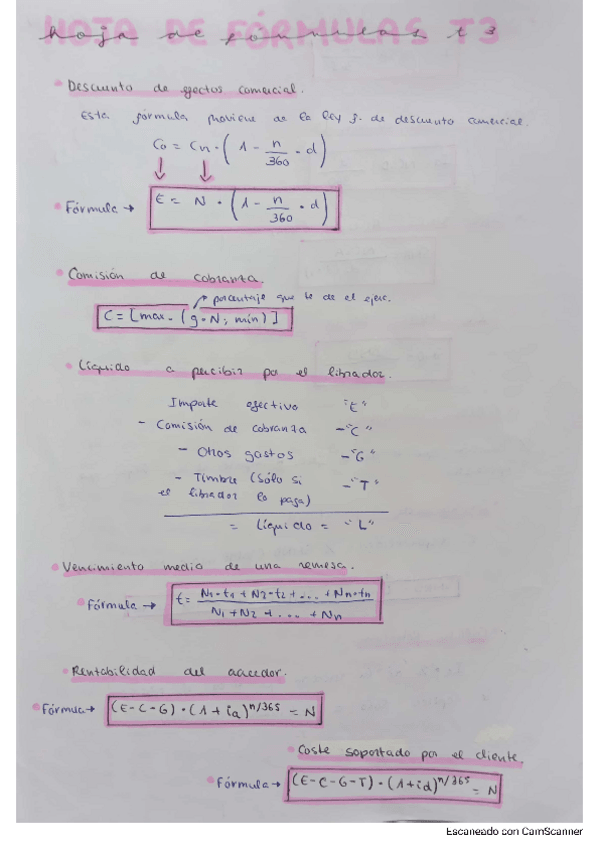 HOJA DE FÓRMULAS T3
hoja de fórmulas t3
Descuento de efectos comercial.
Esta fórmula proviene de la ley f. de descuento comercial.
Co = Cn · (1 - n/360 · d)
Fórmula → E = N · (1 - n/360 · d)
Comisión de cobranza.
porcentaje que te de el ejer.
C = [max. (g · N; min)]
Líquido a percibir por el librador.
Importe efectivo "E"
- Comisión de cobranza -"C"
- Otros gastos -"G"
- Timbre (Sólo si -"T"
el librador lo paga)
= Líquido = "L"
Vencimiento medio de una remesa.
Fórmula → t = N1·t1 + N2·t2 + .... + Nn·tn / N1 + N2 + .... + Nn
Rentabilidad del acreedor.
Fórmula → (E-C-G) · (1+ia)^n/365 = N
Coste soportado por el cliente.
Fórmula → (E-C-G-T) · (1+id)^n/365 = N
Escaneado con CamScanner